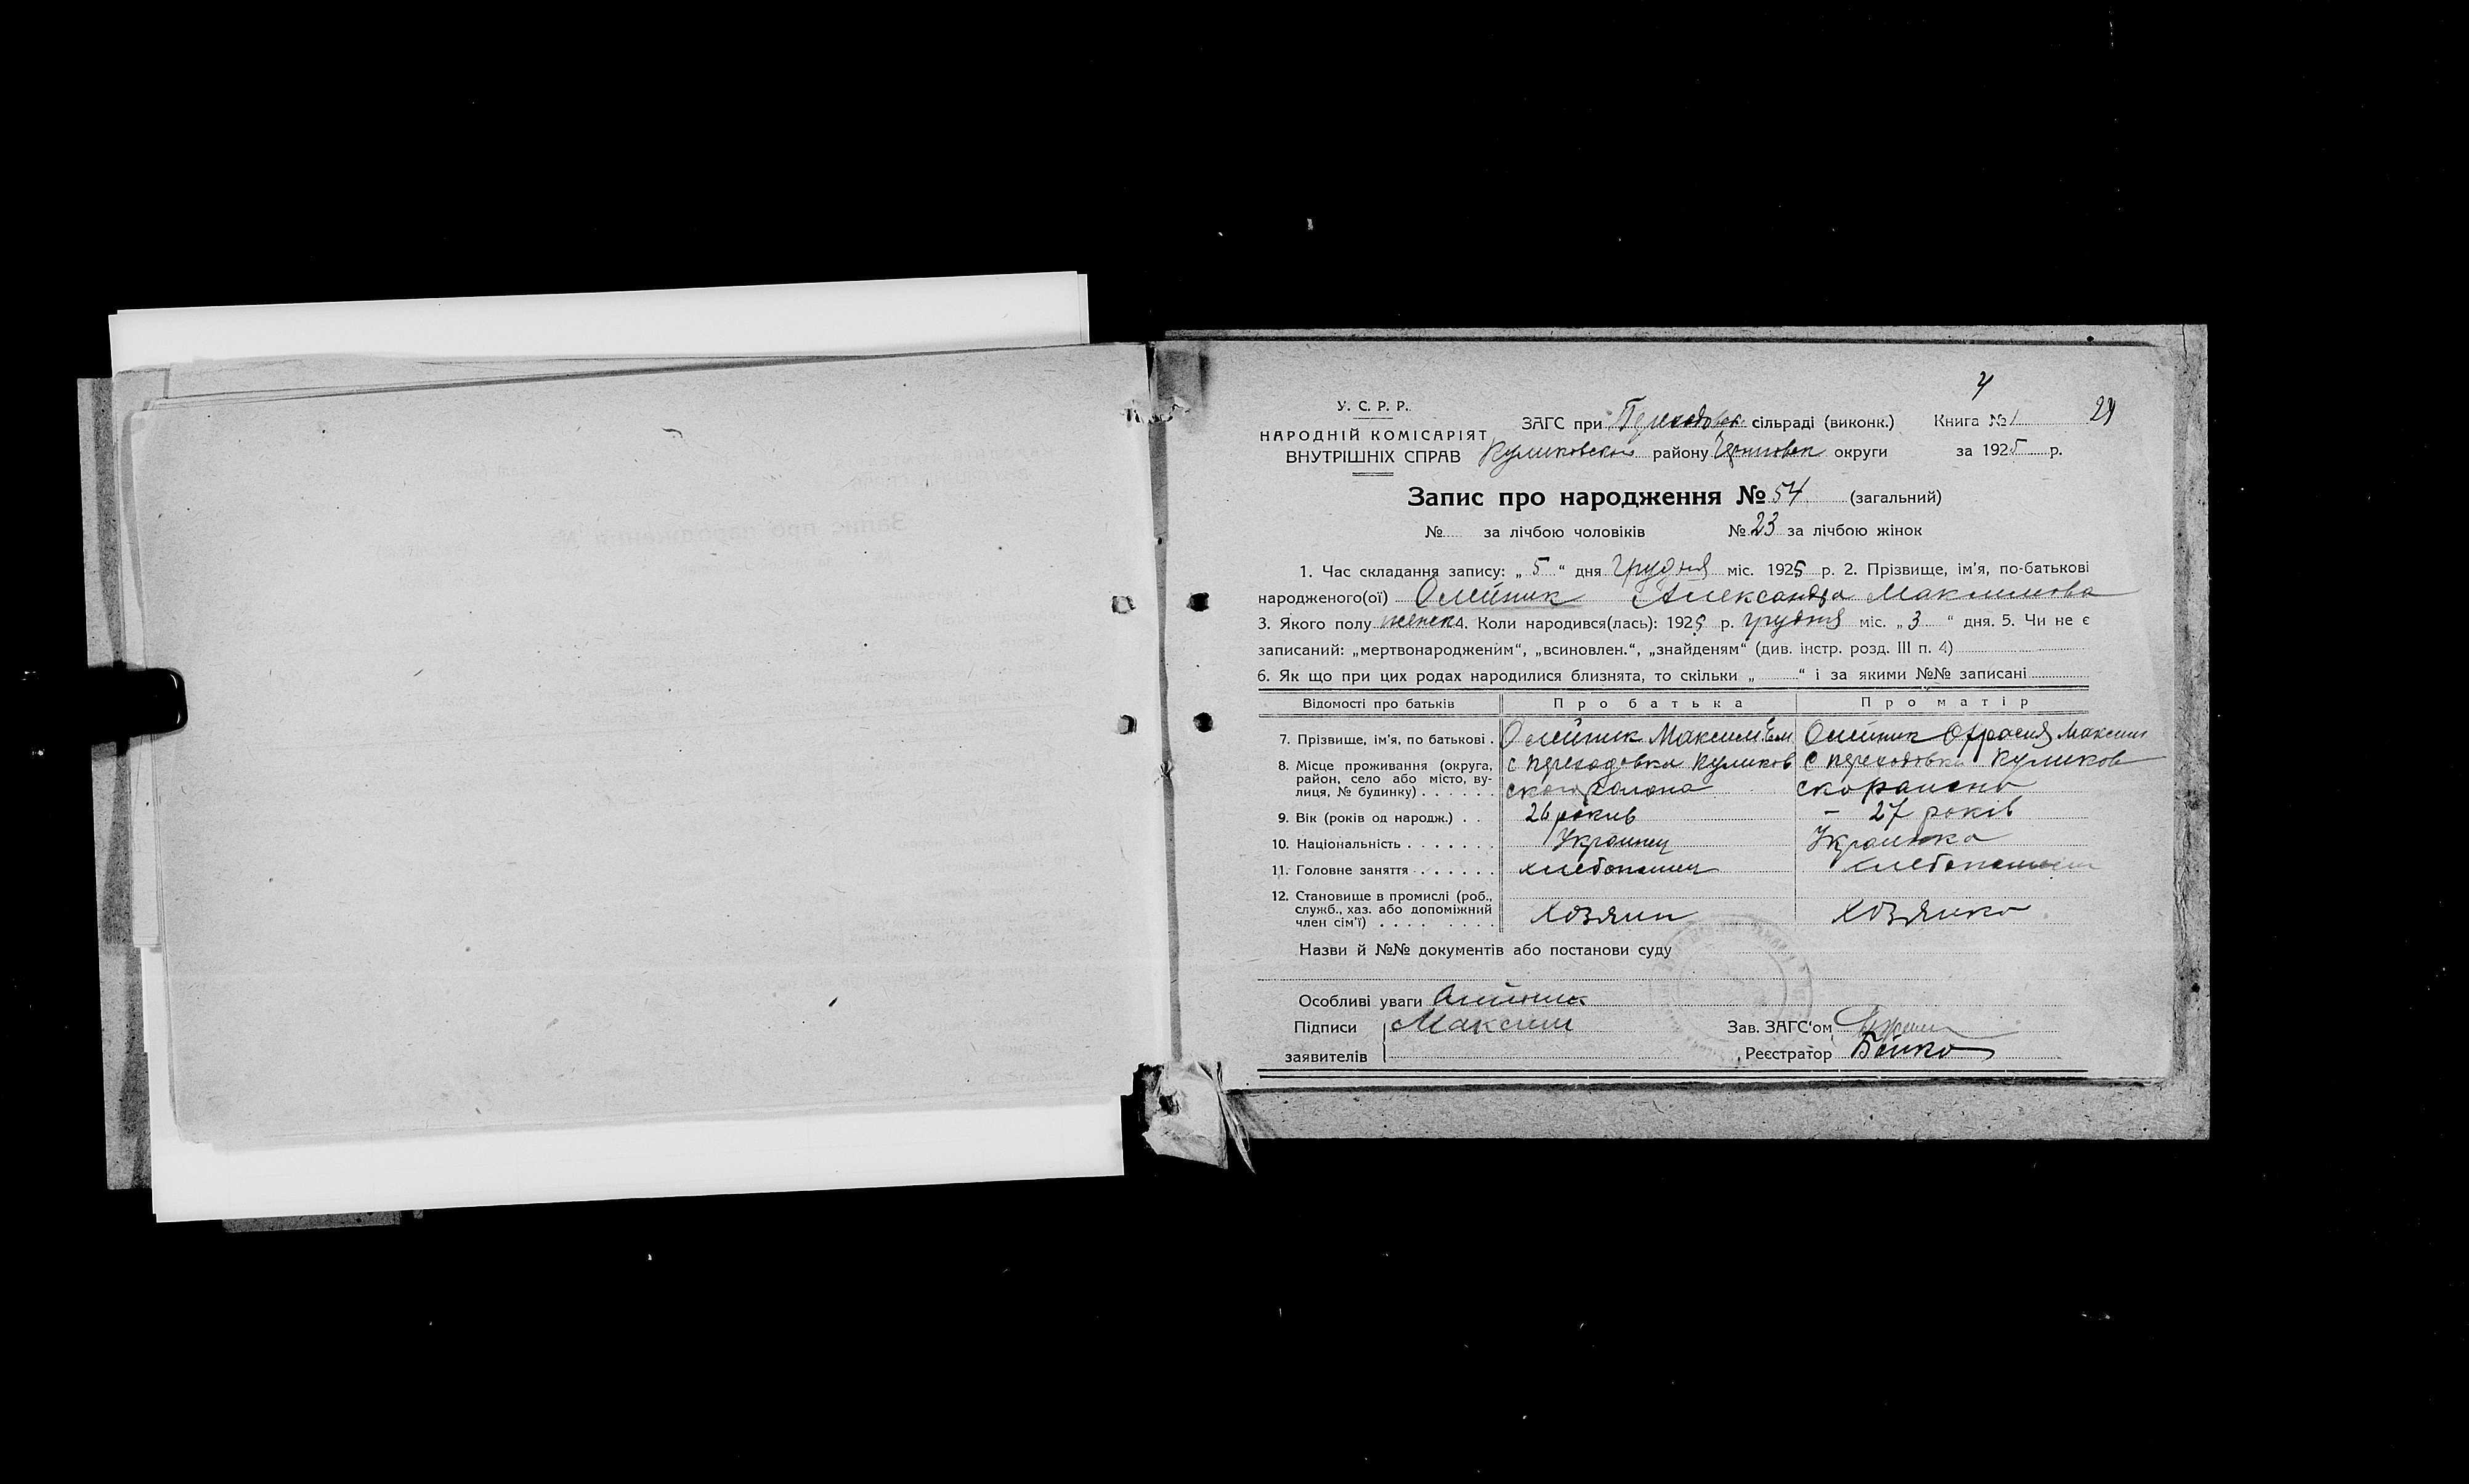 4
У. С. Р. Р.
НАРОДНІЙ КОМІСАРІЯТ
ВНУТРІШНІХ СПРАВ
ЗАГС при сільраді (виконк.) Книга № 1 24
Куликовского району округи за 1925 р.
Запис про народження № 54 (загальний)
№ за лічбою чоловіків № 23 за лічбою жінок
1. Час складання запису: „ 5 “ дня Грудня міс. 1925 р. 2. Прізвище, ім'я, по-батькові
народженого(ої) Олейник Александра Максимова
3. Якого полу женск 4. Коли народився(лась): 1925 р. Грудня міс. „ 3 “ дня. 5. Чи не є
записаний: „мертвонародженим“, „всиновлен.“, „знайденям“ (див. інстр. розд. III п. 4)
6. Як що при цих родах народилися близнята, то скільки „ “ і за якими №№ записані
Відомості про батьків Про батька Про матір
7. Прізвище, ім'я, по батькові . Олейник Максим Ем Олейник Максим
8. Місце проживання (округа, с Переходовка Куликов с Переходовка Куликов
район, село або місто, ву-
лиця, № будинку) . . . . . . ского района ско района
9. Вік (років од народж.) . . 26 років – 27 років
10. Національність . . . . . . . Украинец Украинка
11. Головне заняття . . . . . . . хлебопашец
12. Становище в промислі (роб.,
служб., хаз. або допоміжний
член сім'ї) . . . . . . . . Хозяин Хозяйка
Назви й №№ документів або постанови суду
Особливі уваги Олейник
Підписи Максим Зав. ЗАГС'ом
заявителів Реєстратор Бойко